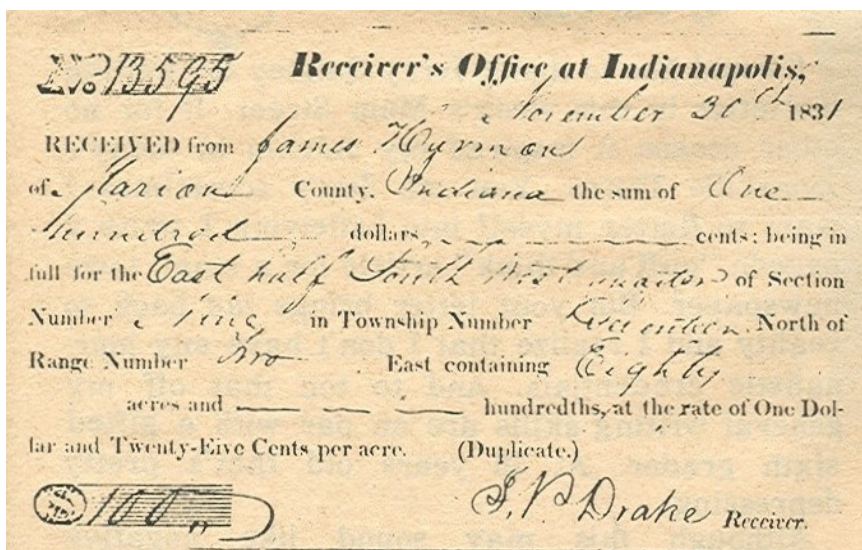 No. 13595 Receiver's Office at Indianapolis,
November 30th 1831
RECEIVED from James Hyrmon
of Marion County, Indiana the sum of One
hundred dollars, cents; being in
full for the East half South West quarter of Section
Number Nine in Township Number Seventeen North of
Range Number Two East containing Eighty
acres and hundredths, at the rate of One Dol-
lar and Twenty-Five Cents per acre. (Duplicate.)
$100 J. P. Drake Receiver.